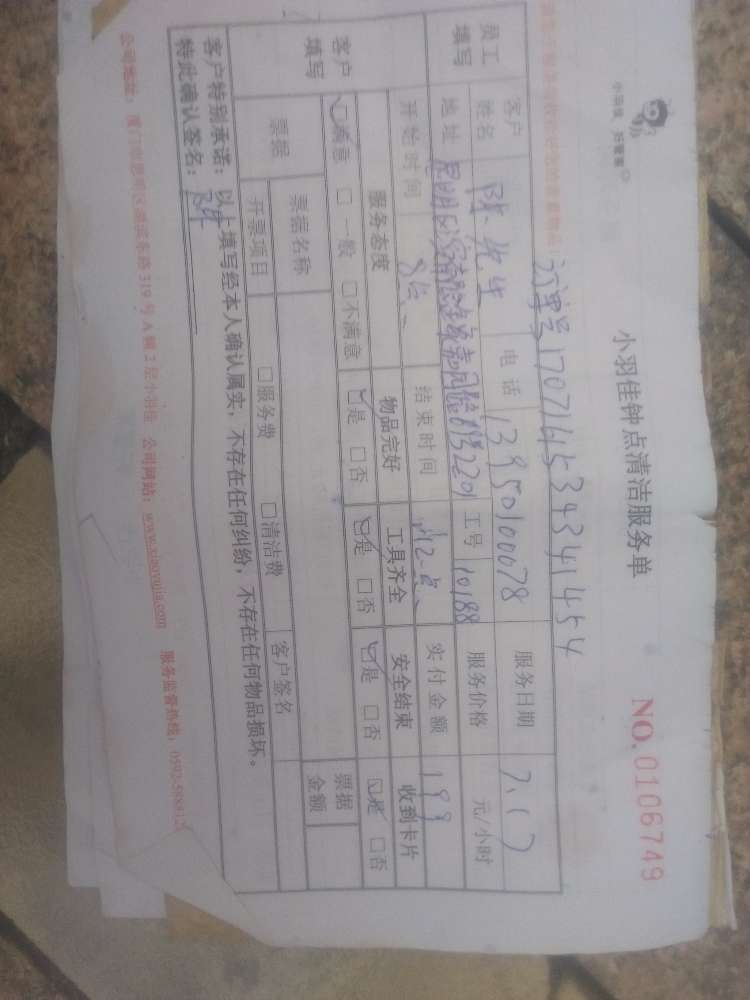 小羽佳钟点清洁服务单
NO. 0106749
订单号 1707164534341454
员工填写
客户姓名 陈先生 电话 13950100078 服务日期 7.17
地址 工号 10188 服务价格 元/小时
开始时间 8点 结束时间 12点 实付金额 199
客户填写
服务态度 物品完好 工具齐全 安全结束 收到卡片
☑满意 □一般 □不满意 ☑是 □否 ☑是 □否 ☑是 □否 ☑是 □否
票据 票据名称 票据金额
开票项目 □服务费 □清洁费 客户签名
客户特别承诺：以上填写经本人确认属实，不存在任何纠纷，不存在任何物品损坏。
特此确认签名：
公司地址：厦门市思明区 319号A幢2层小羽佳 公司网站：www.xiaoyujia.com 服务监督热线：0592-